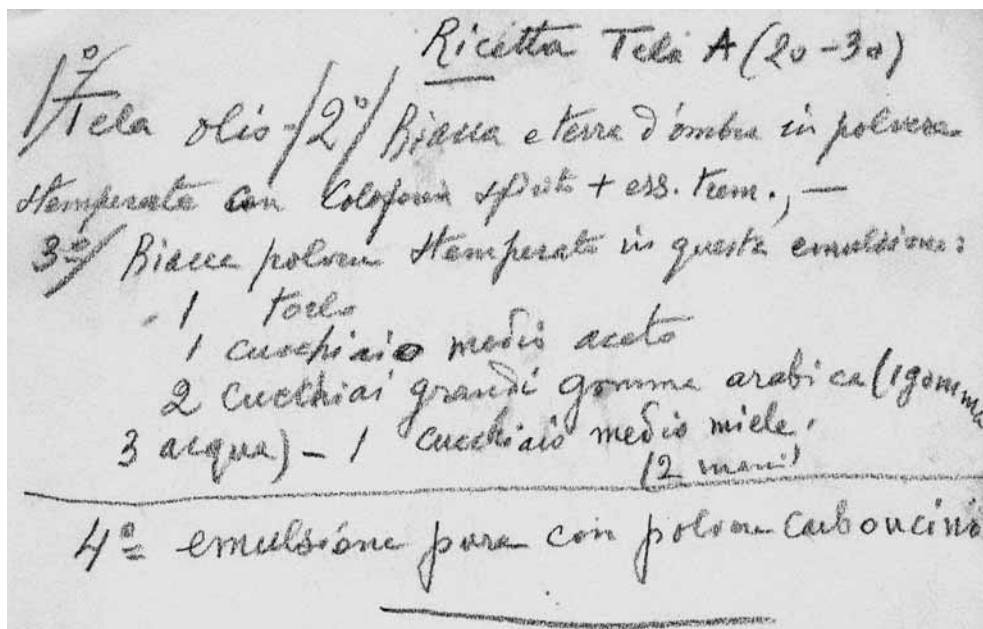 Ricetta Tela A (20-30)
1º/ Tela olio-/2º/ Biacca e terra d'ombra in polvere
stemperate con Colofonia spirito + ess. trem., —
3º/ Biacca polvere stemperata in questa emulsione:
1 torlo
1 cucchiaio medio aceto
2 cucchiai grandi gomma arabica (1 gomma
3 acqua) - 1 cucchiaio medio miele.
(2 mani)
4º= emulsione pura con polvere carboncino